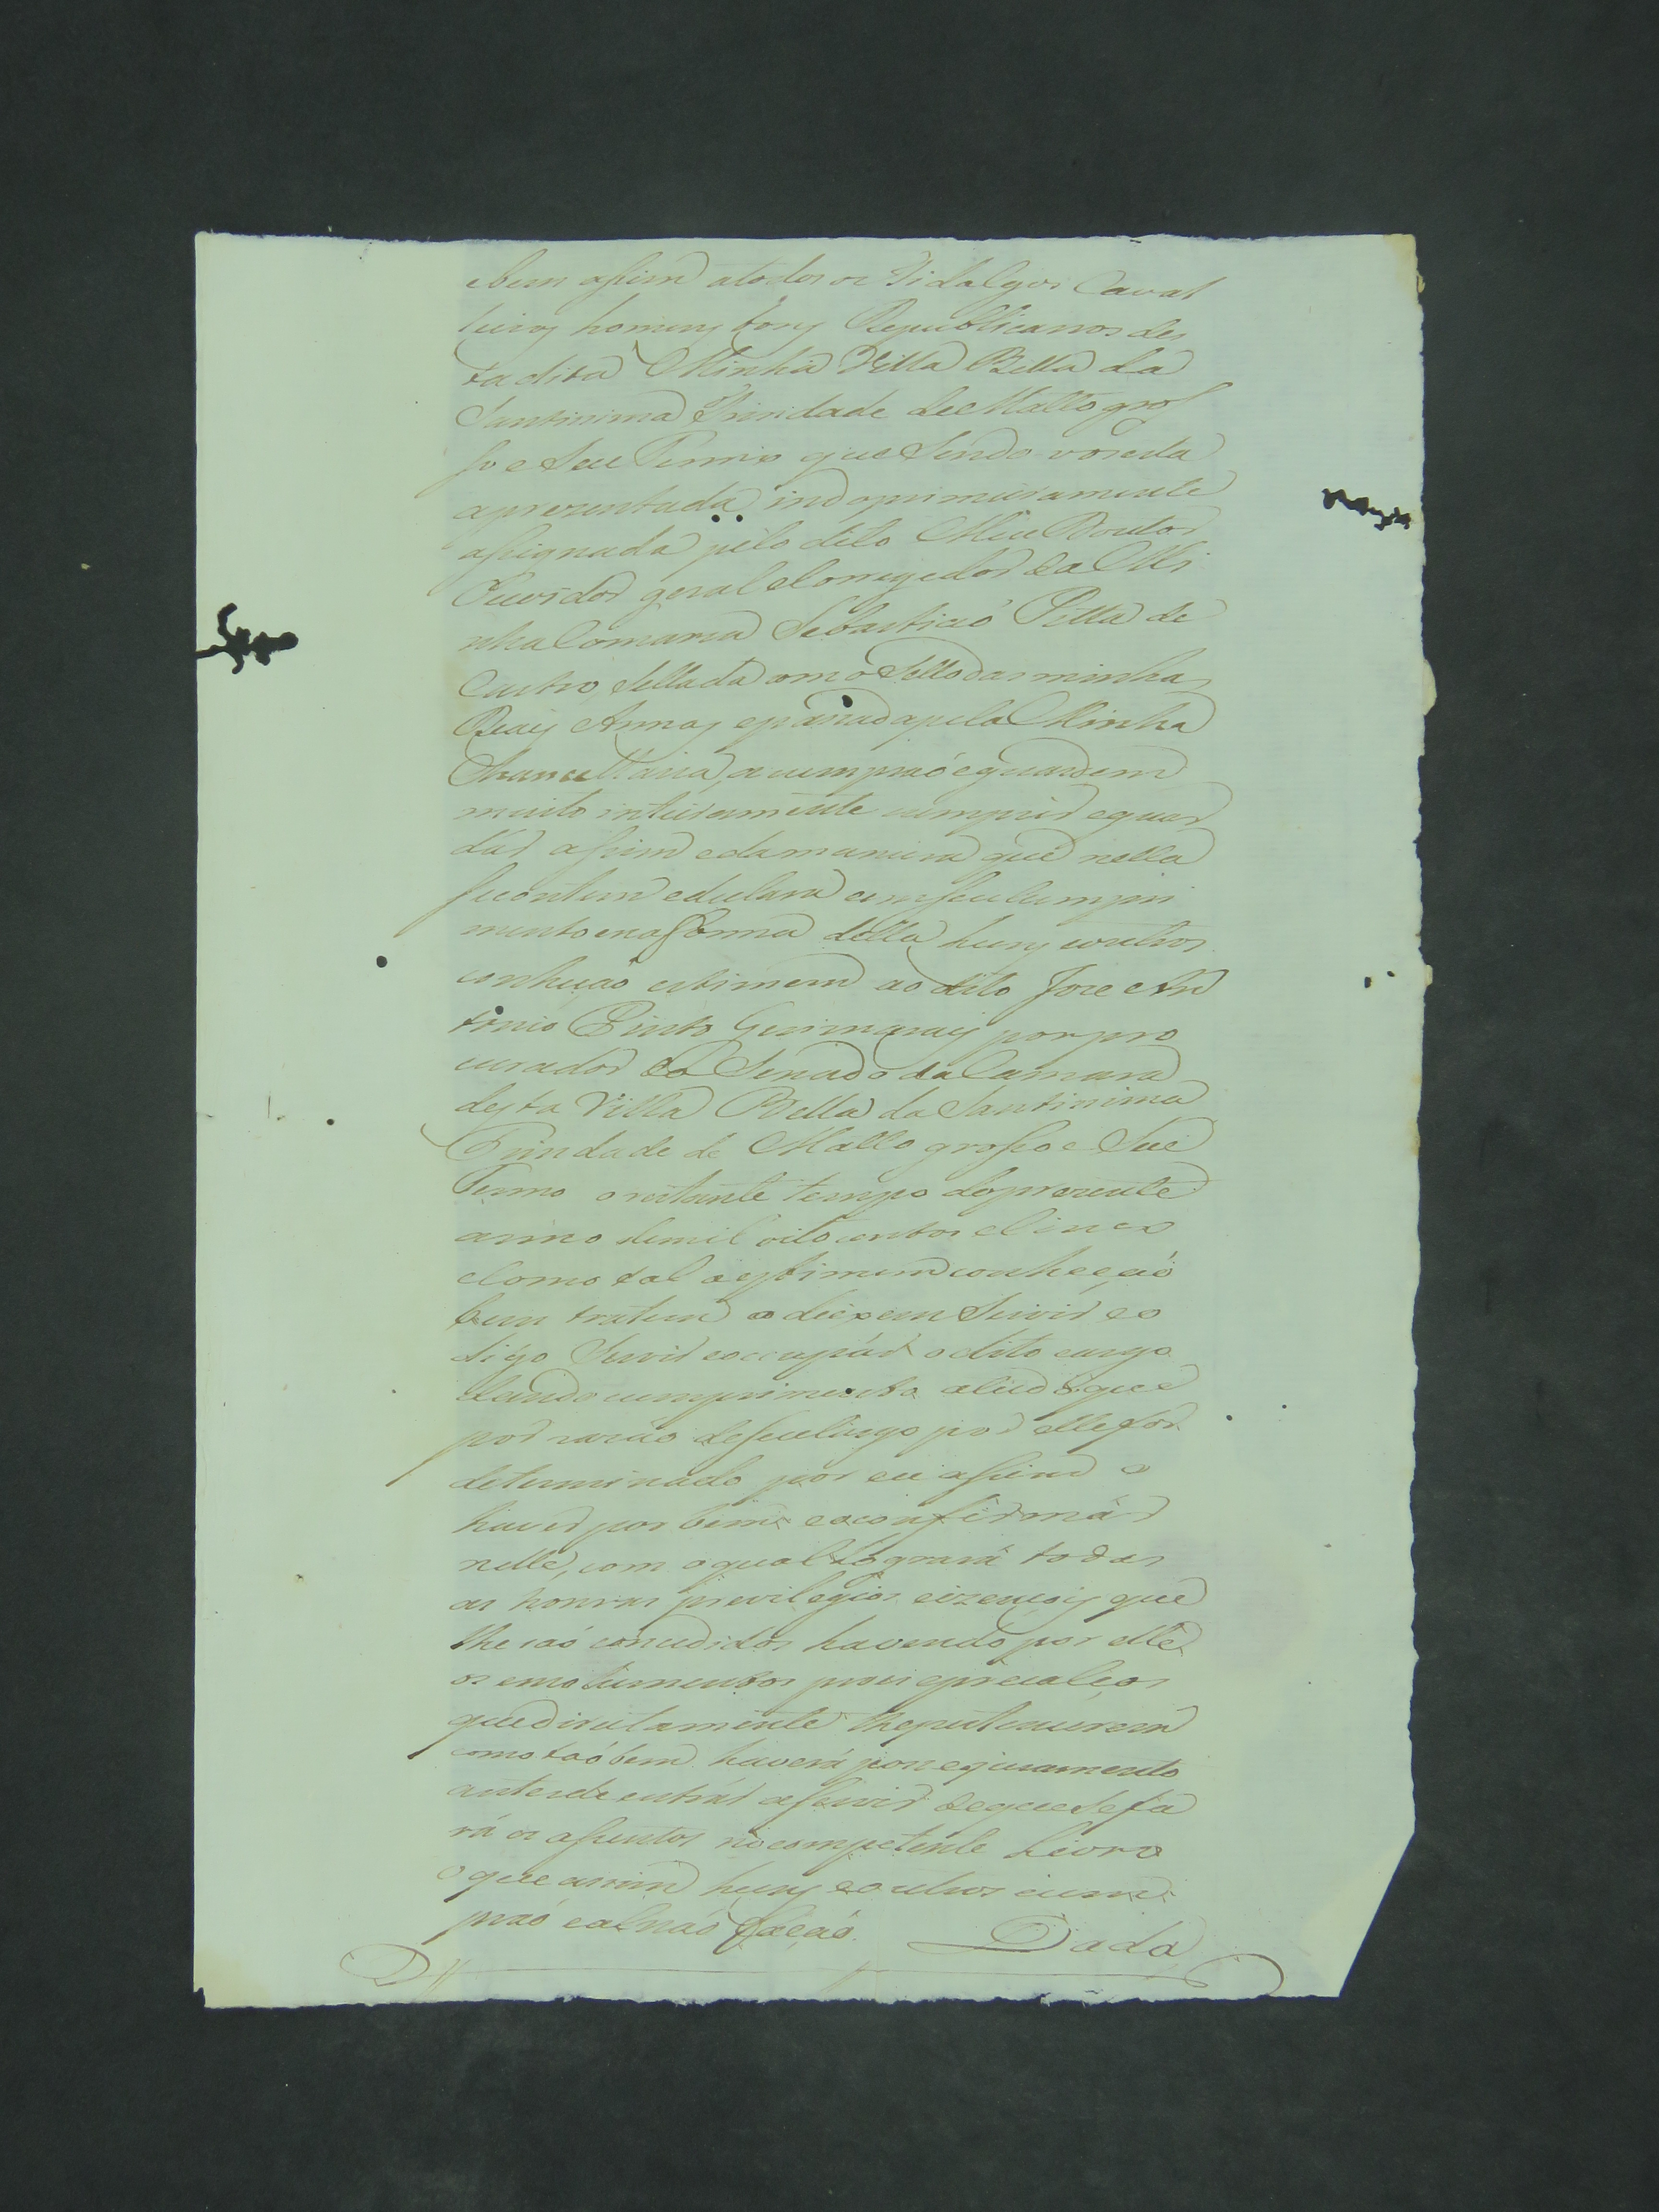 ebem assim atodos os Fidalgos Caval
leiros homens bons Republicanos des
ta dita Minha Villa Bella da
Santissima Trindade de Matto gros
so e Seu Termo que Sendo vos esta
aprezentada indo primeiramente
assignada pelo dito Meu Doutor
Ouvidor geral eCorregedor da Mi
nha Comarca Sebastiaõ Pitta de
Castro, Sellada com o Sello das minhas
Reais Armas epassada pela Minha
Chancellaria, a cumpraõ eguardem
muito inteiramente cumprir eguar
dar assim edamaneira que nella
secontem edeclara eemseuCumpri
mento enaforma della huns eoutros
conheçaõ estimem ao dito Joze An
tonio Pinto Guimarais por pro
curador do Senado da Camara
desta Villa Bella da Santissima
Trindade de Matto grosso e Seu
Termo o restante tempo doprezente
anno demil oitocentos eCinco
eComo tal oestimem conheçaõ
bem tratem odeixem Servir eo
digo Servir eoccupár o dito cargo
dando cumprimento atudo que
por razaõ deseuCargo por elle for
determinado por eu assim o
haver por bem eoconfirmár
nelle, com oqual Lograrâ todas
as honras previlegios eizençois que
lhe saõ concedidos havendo por elle
os emolumentos prois eprecalços
quediretamente lhepertencerem
como taõbem haverá posse ejuramento
antesde entrár aServir deque Se fa
rá os assentos nocompetente Livro
o que assim huns eoutros cum
praõ ealnaõ façaõ. Dada